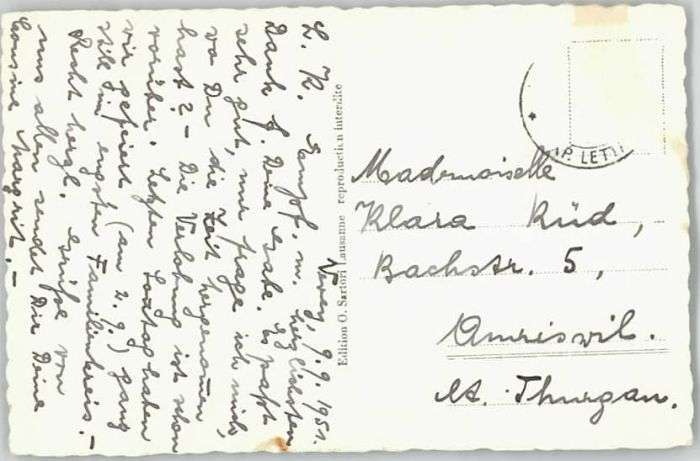 Vevey, 9.9.1951.
L. K. Empf. m. herzlichsten
Dank f. Deine Gabe. Es passt
sehr gut, nur frage ich mich,
wo Du die Zeit hergenommen
hast? – Die Verlobung ist schon
vorüber. Letzten Sonntag haben
wir gefeiert (am 2.9.) ganz
still im engsten Familienkreis. –
Recht herzl. Grüsse von
uns allen sendet Dir Deine
Cousine Margrit. –
Edition O. Sartori Lausanne reproduction interdite
IP. LETT
Mademoiselle
Klara Rüd,
Bachstr. 5,
Amriswil.
Kt. Thurgau.